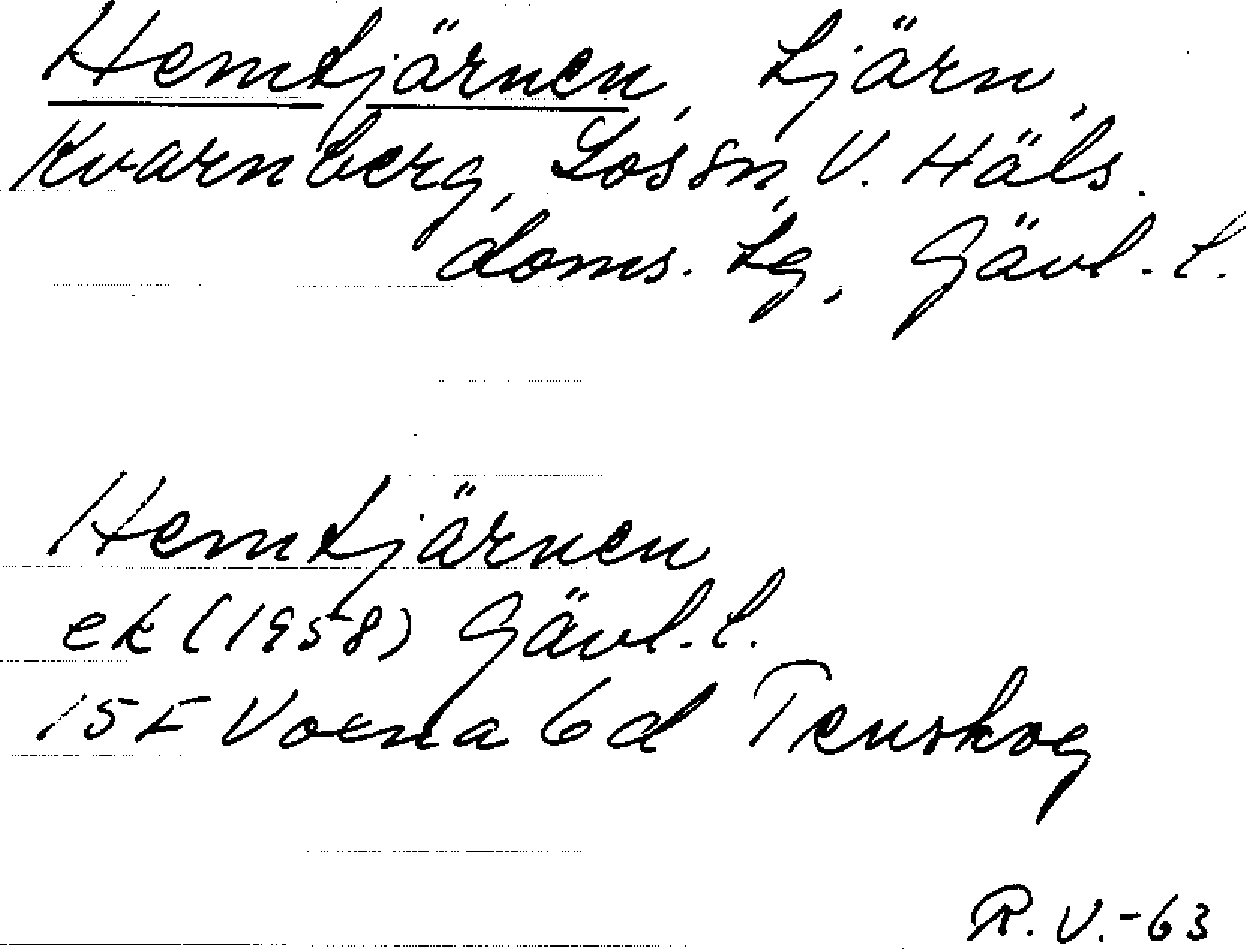 Hemtjärnen, tjärn,
Kvarnberg, Los sn, V. Häls.
doms. lg, Gävl. l.
Hemtjärnen
ek (1958) Gävl. l.
15F Voxna 6d Tenskog
R.V.-63